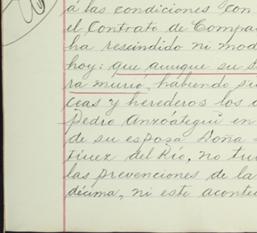 á las condiciones con
el Contrato de Compa
ha rescindido ni mod
hoy: que aunque su
ra murió, habiendo su
ceas y herederos los
Pedro Anzóategui en
de su esposa Doña
tinez del Rio, no tu
las prevenciones de la
décima, ni este aconte